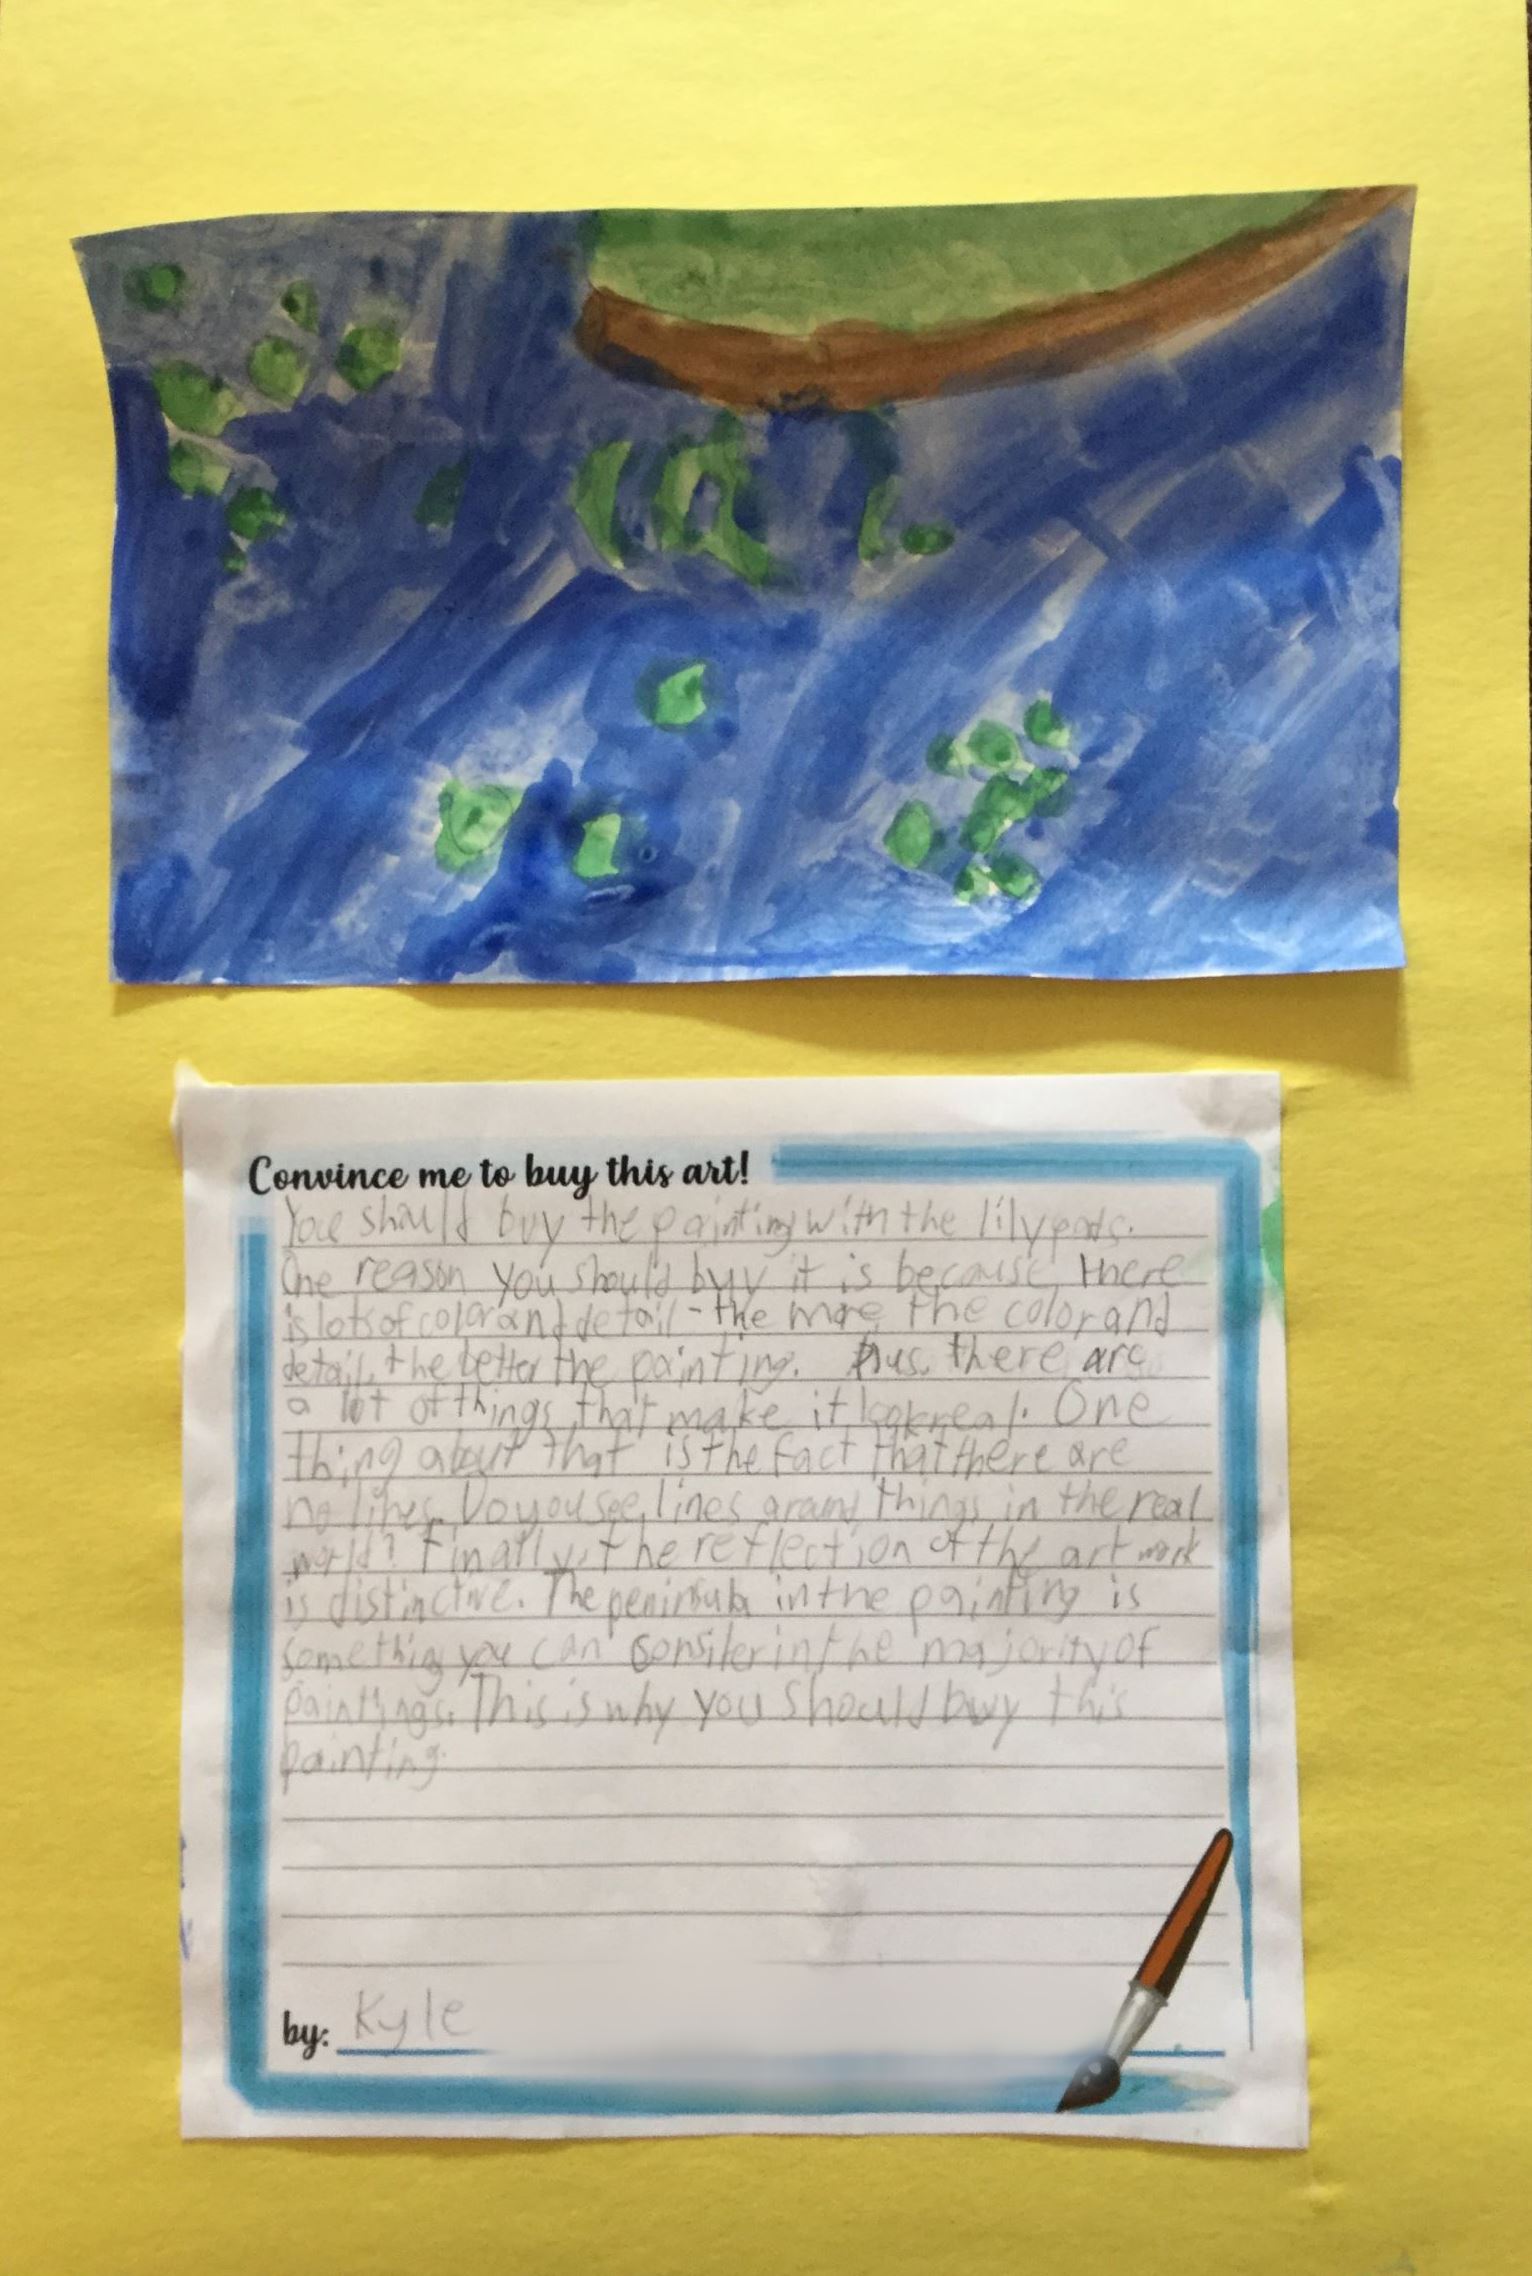 Convince me to buy this art!
You should buy the painting with the lilypads.
One reason you should buy it is because there
is lots of color and detail - the more the color and
detail, the better the painting. Plus, there are
a lot of things that make it look real. One
thing about that is the fact that there are
no lines. Do you see lines around things in the real
world? Finally, the reflection of the art work
is distinctive. The peninsula in the painting is
something you can in the majority of
paintings. This is why you should buy this
painting.
by: Kyle